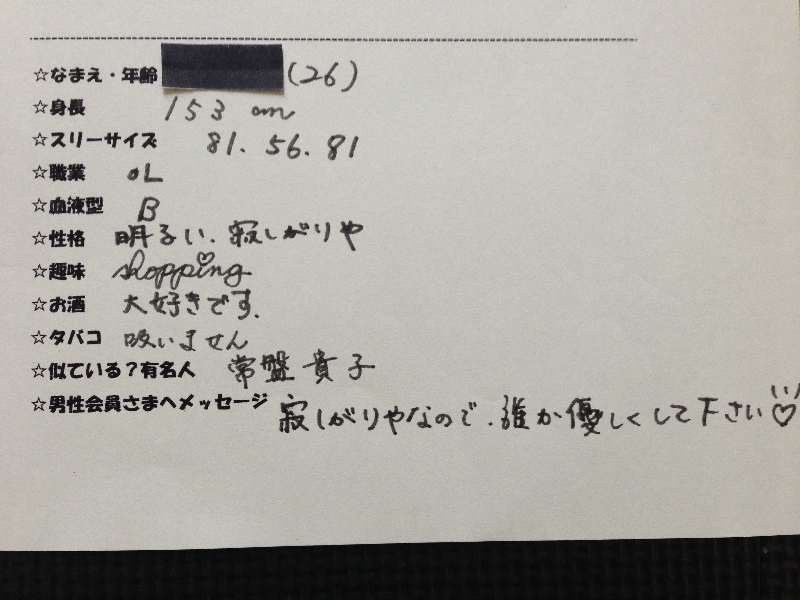 ☆なまえ・年齢 (26)
☆身長 153 cm
☆スリーサイズ 81. 56. 81
☆職業 OL
☆血液型 B
☆性格 明るい、寂しがりや
☆趣味 shopping
☆お酒 大好きです。
☆タバコ 吸いません
☆似ている?有名人 常盤貴子
☆男性会員さまへメッセージ 寂しがりやなので、誰か優しくして下さい♡